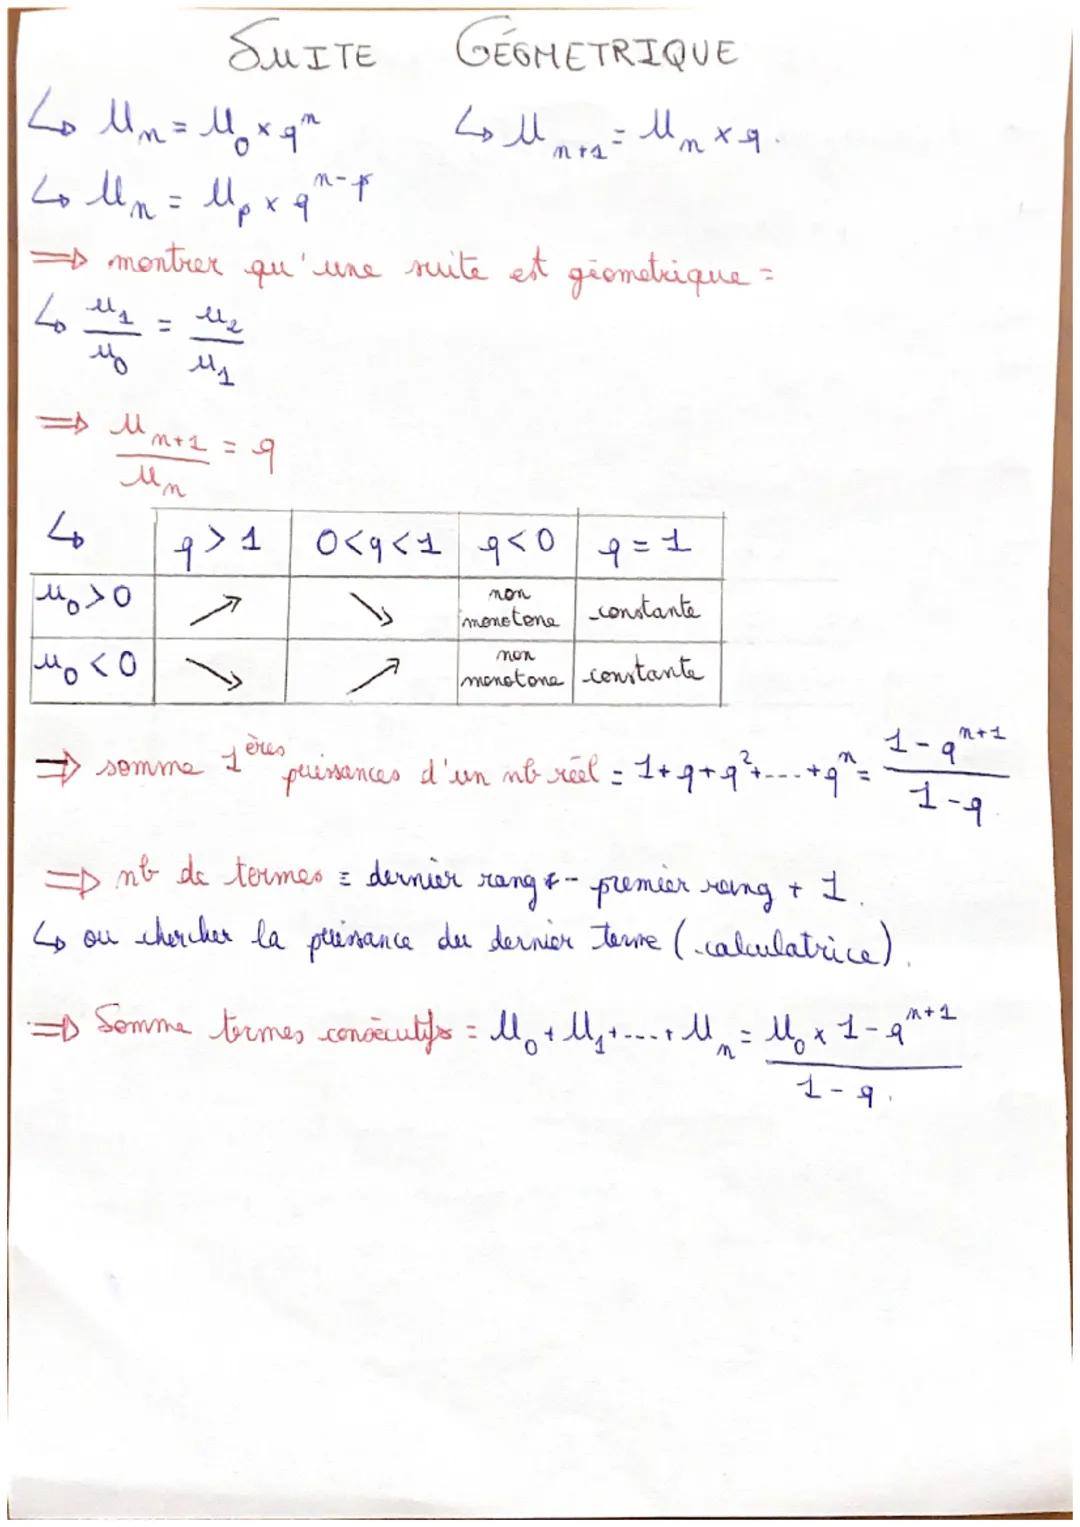 SUITE GÉOMETRIQUE
↳ Un = U0 × q^n ↳ Un+1 = Un × q.
↳ Un = Up × q^n-p
⇒ montrer qu'une suite est géometrique =
↳ u1/u0 = u2/u1
⇒ Un+1/Un = q
↳ q > 1 0<q<1 q<0 q = 1
u0 > 0 ↗ ↘ non monotone constante
u0 < 0 ↘ ↗ non monotone constante
⇒ somme 1ères puissances d'un nb réel = 1+q+q²+...+q^n = 1-q^n+1/1-q.
⇒ nb de termes = dernier rang - premier rang + 1.
↳ ou chercher la puissance du dernier terme (calculatrice).
⇒ Somme termes consécutifs = U0 + U1 +...+ Un = U0 × 1-q^n+1/1-q.